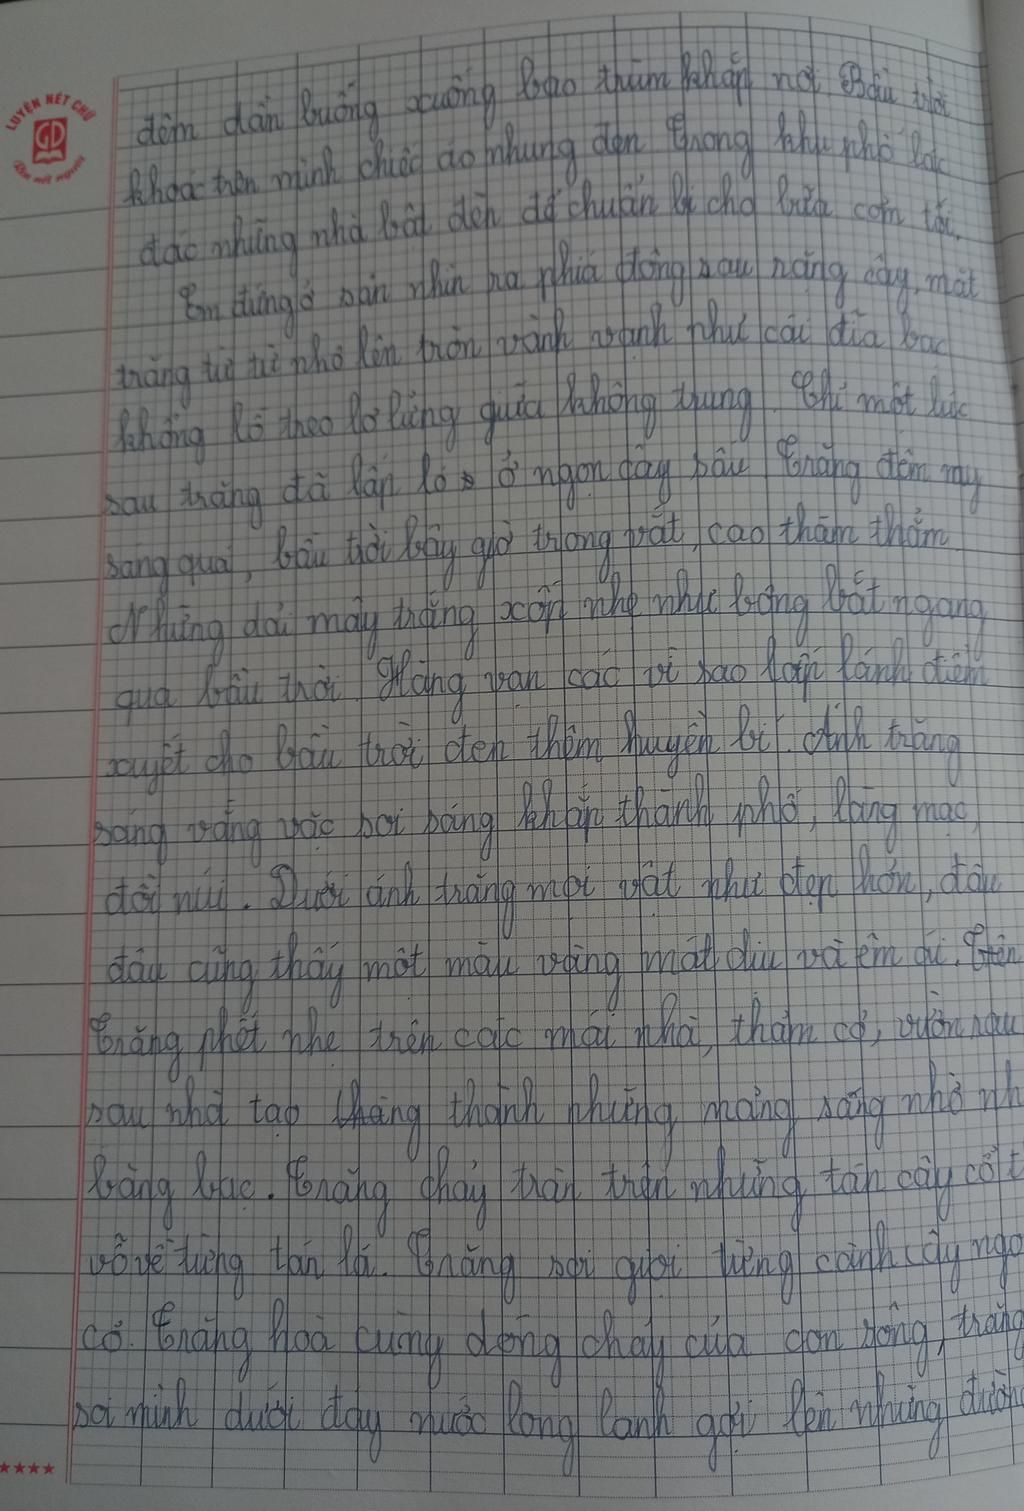 LUYỆN NÉT CHỮ
GD
Rèn nết người
đêm dần buông xuống bao thùm khắp nơi Bầu trời
khoác trên mình chiếc áo nhung đen Trong khu phố lác
đác những nhà bật đèn để chuẩn bị cho bữa cơm tối.
Em đứng ở sân nhìn ra phía đông sau rặng cây, mặt
trăng từ từ nhô lên tròn vành vạnh như cái đĩa bạc
khổng lồ theo lơ lửng giữa không trung. Chỉ một lúc
sau trăng đã lấp ló ở ngọn cây sấu Trăng đêm nay
sáng quá, bầu trời bây giờ trong vắt, cao thăm thẳm
Những dải mây trắng xốp nhẹ như bông vắt ngang
qua bầu trời. Hàng vạn các vì sao lấp lánh điểm
xuyết cho bầu trời đen thêm huyền bí. Ánh trăng
sáng vằng vặc soi sáng khắp thành phố, làng mạc,
đồi núi. Dưới ánh trăng mọi vật như đẹp hơn, đâu
đâu cũng thấy một màu vàng mát dịu và êm ái. Trên
Trăng phết nhẹ trên các mái nhà, thảm cỏ, vườn sau
sau nhà tạo thành những mảng sáng nhờ nh
bàng bạc. Trăng chảy tràn trên những tán cây cổ t
vỗ về từng tán lá. Trăng soi gioi từng cành cây ngọ
cỏ. Trăng hoà cùng dòng chảy của con sông, trăng
soi mình dưới đáy nước long lanh gợi lên những đườn